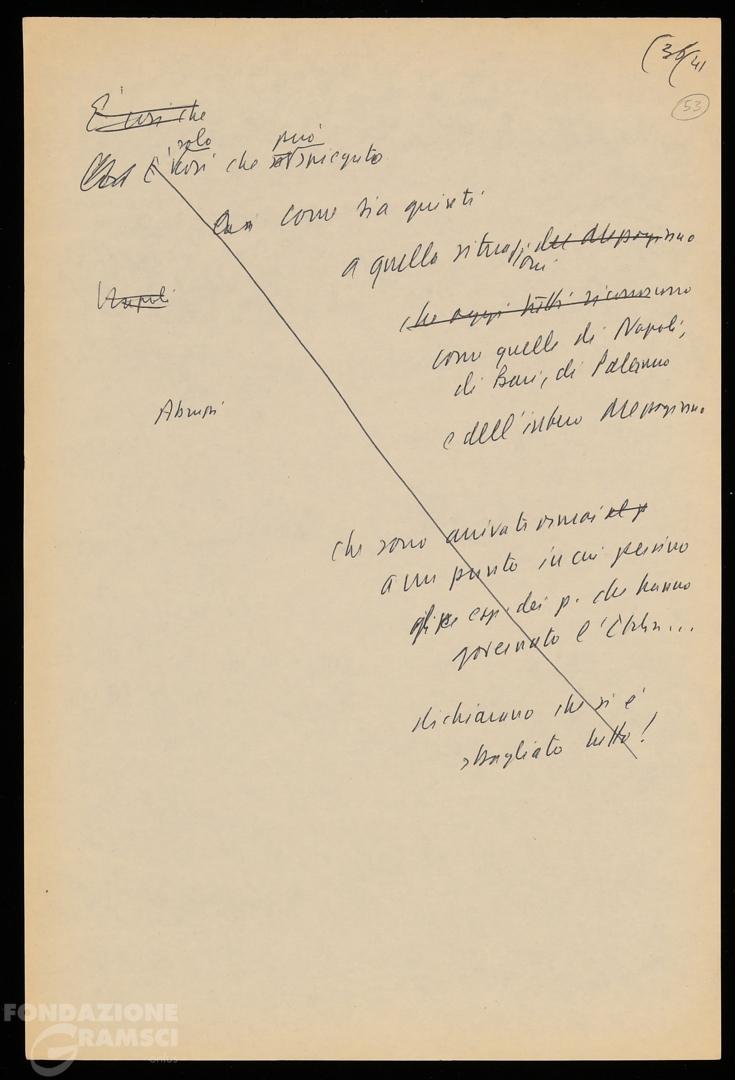 (36/41
53
E' così che
solo può
E' così che spiegato
come sia giunti
a quelle situazioni del Mezzogiorno
Napoli
che oggi tutti riconoscono
come quelle di Napoli,
di Bari, di Palermo
Abruzzi
e dell'intero Mezzogiorno
che sono arrivate ormai al p
a un punto in cui persino
dei p. che hanno
governato l'Italia...
dichiarano che si è
sbagliato tutto!
FONDAZIONE
GRAMSCI
onlus